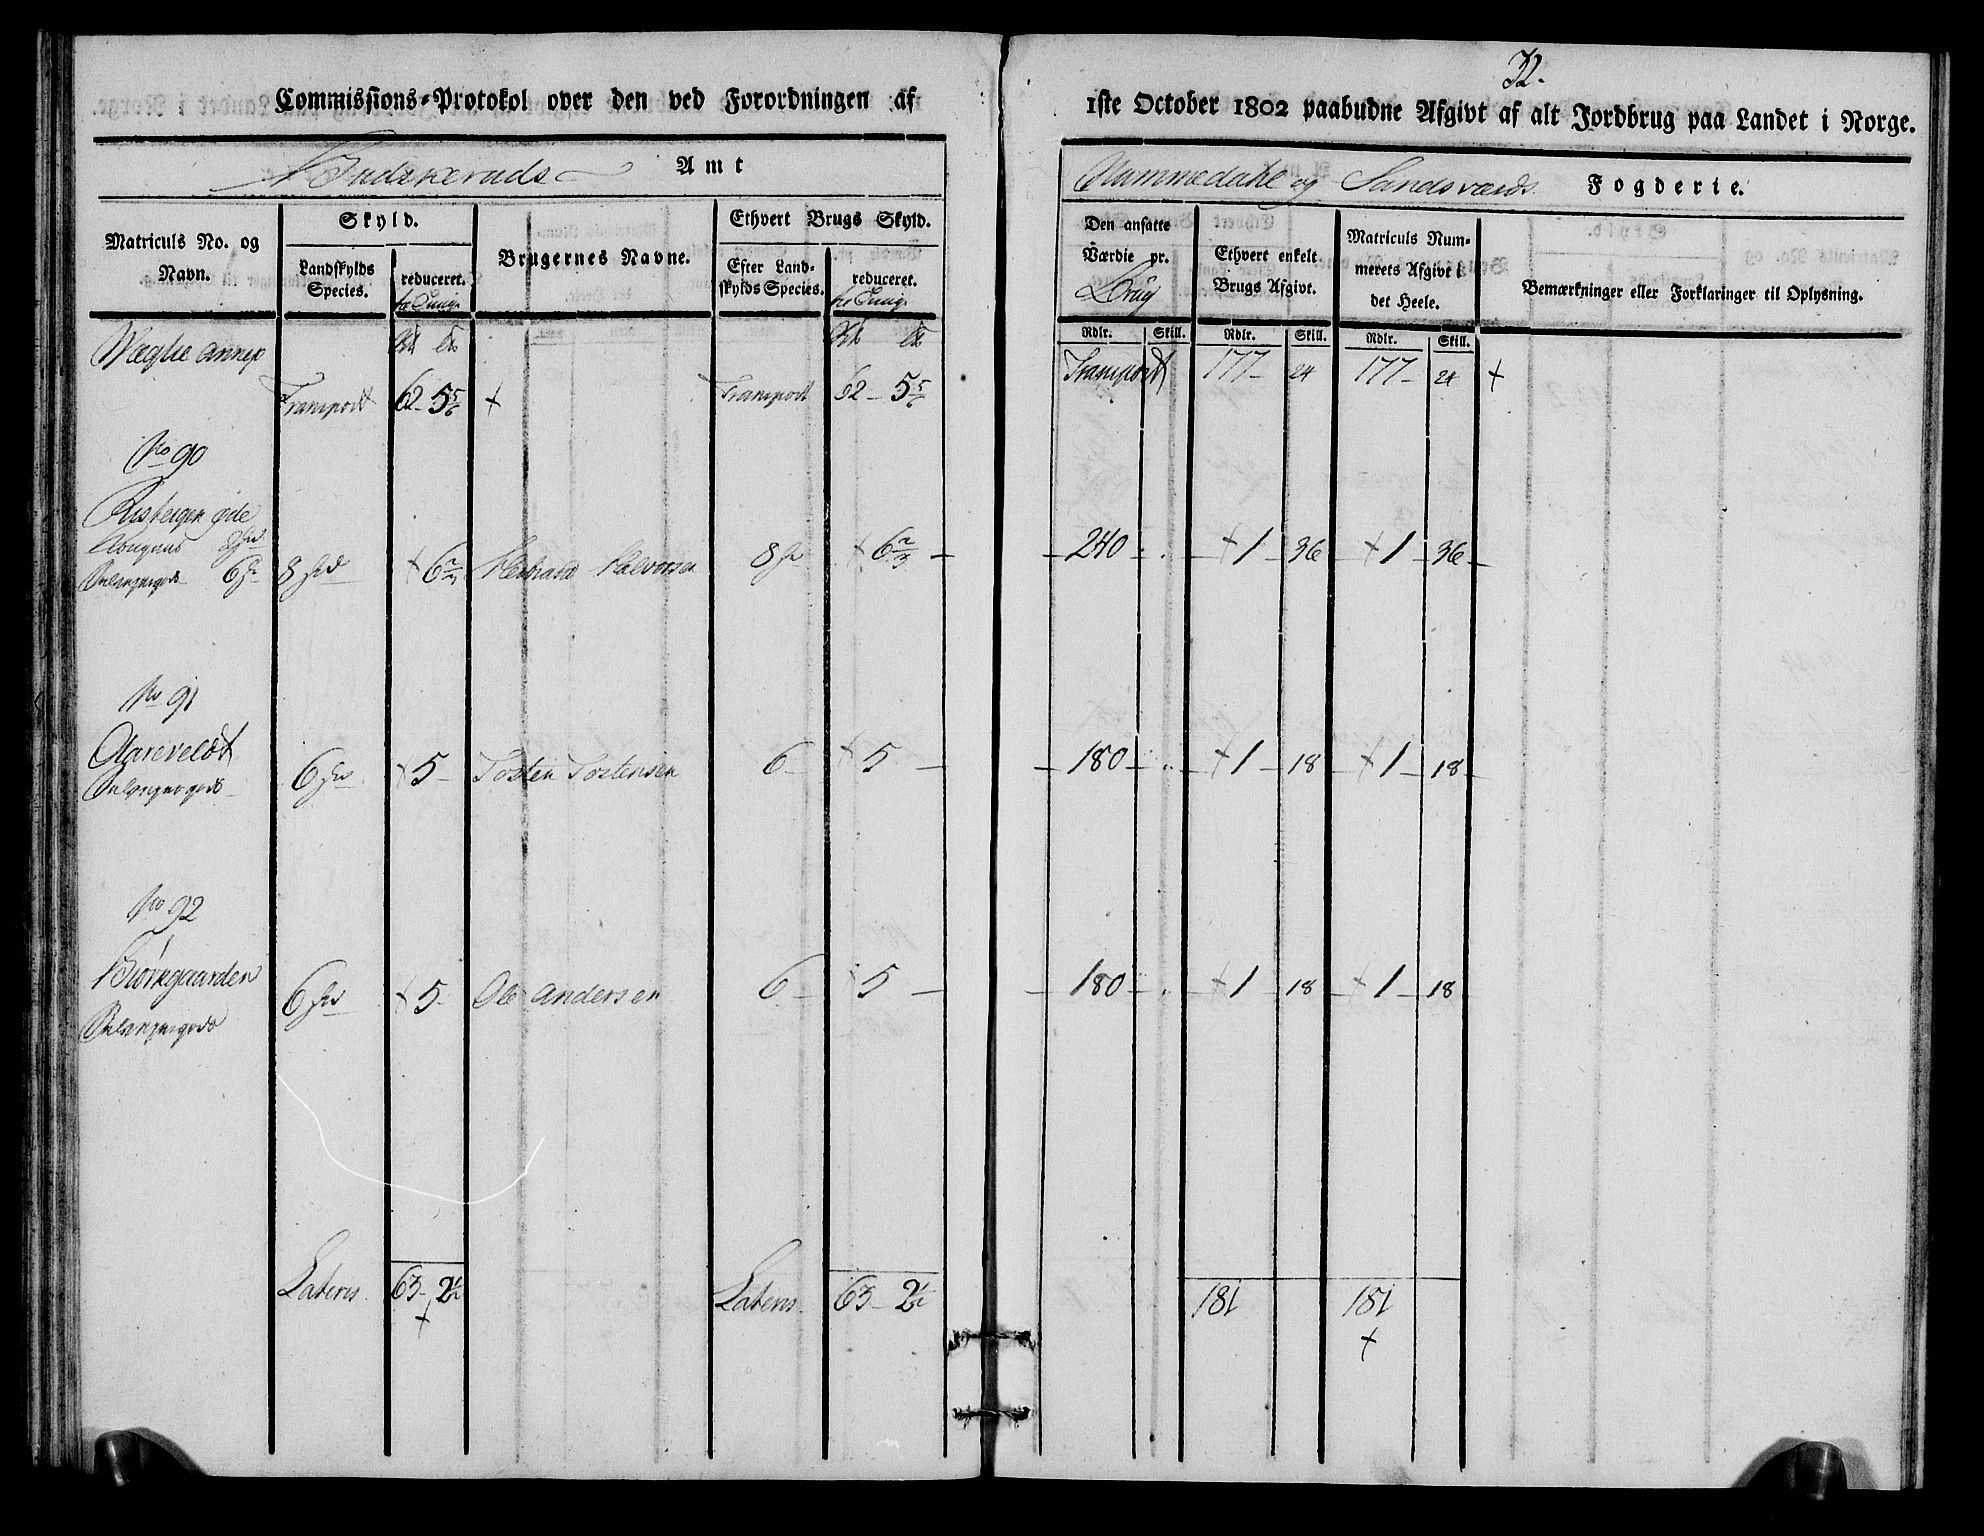 Commissions-Protokol over den ved Forordningen af
Budskeruds Amt
Matriculs No. og Navn.
Skyld.
Landskylds Species.
reduceret.
Brugernes Navne.
Ethvert Brugs Skyld.
Efter Landskylds Species.
reduceret.
Wæglie annex
Transport 62 - 5 5/6 + Transport 62 - 5 5/6
No 90
øde
8 + 6 2/3 Halvorsen 8 + 6 2/3
6
No 91
Aareveldt
6 + 5 Tosten Tostensen 6 + 5
No 92
Biørkgaarden
6 + 5 Ole Andersen 6 + 5
Lateris 63 - 2 1/2 Lateris 63 - 2 1/2
+
32.
1ste October 1802 paabudne Afgivt af alt Jordbrug paa Landet i Norge.
Nummedahl og Sandsværds Fogderie.
Den ansatte Værdie pr. Brug
Ethvert enkelt Brugs Afgivt.
Matriculs Nummerets Afgivt i det Heele.
Bemærkninger eller Forklaringer til Oplysning.
Rdlr. Skill. Rdlr. Skill. Rdlr. Skill.
Transport 177 - 24 177 - 24 +
240 + 1 - 36 + 1 - 36
180 + 1 - 18 + 1 - 18
180 + 1 - 18 + 1 - 18
181 181
+